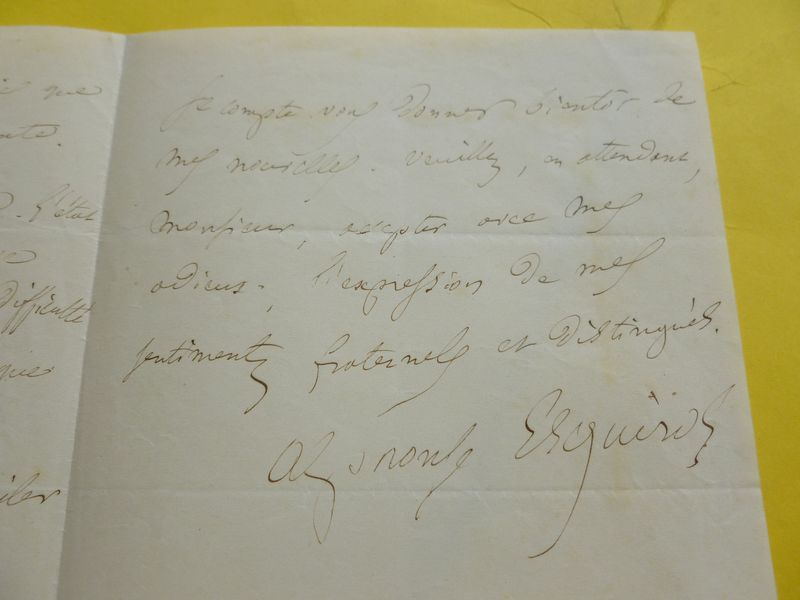 que
. l'état
Difficulté
Je compte vous donner bientôt de
mes nouvelles. Veuillez, en attendant,
monsieur, accepter avec mes
adieux, l'expression de mes
sentiments fraternels et distingués.
Alphonse Esquiros